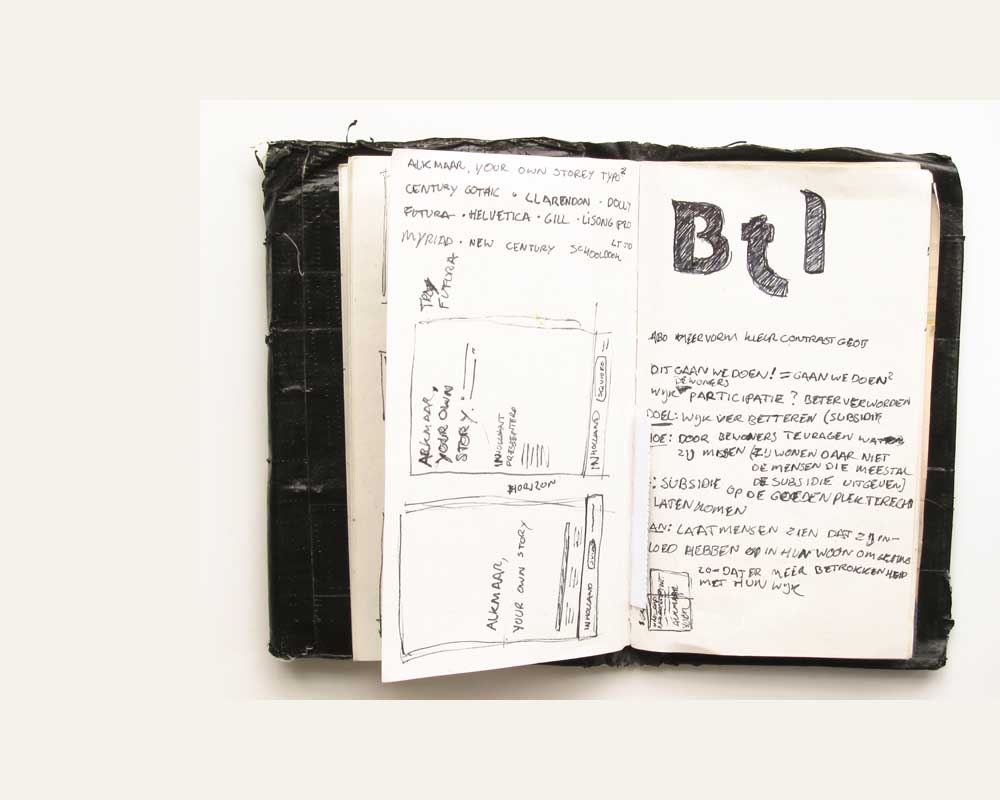 ALKMAAR, YOUR OWN STOREY TYPO²
CENTURY GOTHIC · CLARENDON · DOLLY
FUTURA · HELVETICA · GILL · LISONG PRO
LT STD
MYRIAD · NEW CENTURY SCHOOLBOOK
FUTURA
ALKMAAR,
YOUR OWN
STORY.
INHOLLANT
PRESENTEERD
INHOLLAND
SQUIDEO
HORIZON
ALKMAAR,
YOUR OWN STORY
INHOLLAND
Btl
MEERVORM KLEUR CONTRAST
DIT GAAN WE DOEN! = GAAN WE DOEN²
BEWONERS
WIJK PARTICIPATIE? BETER VERWOORDEN
DOEL: WIJK VERBETTEREN (SUBSIDIE
HOE: DOOR BEWONERS TE VRAGEN WAT
ZIJ MISSEN (ZIJ WONEN DAAR NIET
DE MENSEN DIE MEESTAL
DE SUBSIDIE UITGEVEN)
: SUBSIDIE OP DE GOEDEN PLEK TERECHT
LATEN KOMEN
AN: LAAT MENSEN ZIEN DAT ZIJ IN-
LOED HEBBEN OP IN HUN WOON OMGEVING
ZO-DAT ER MEER BETROKKENHEID
MET HUN WIJK
ALKMAAR